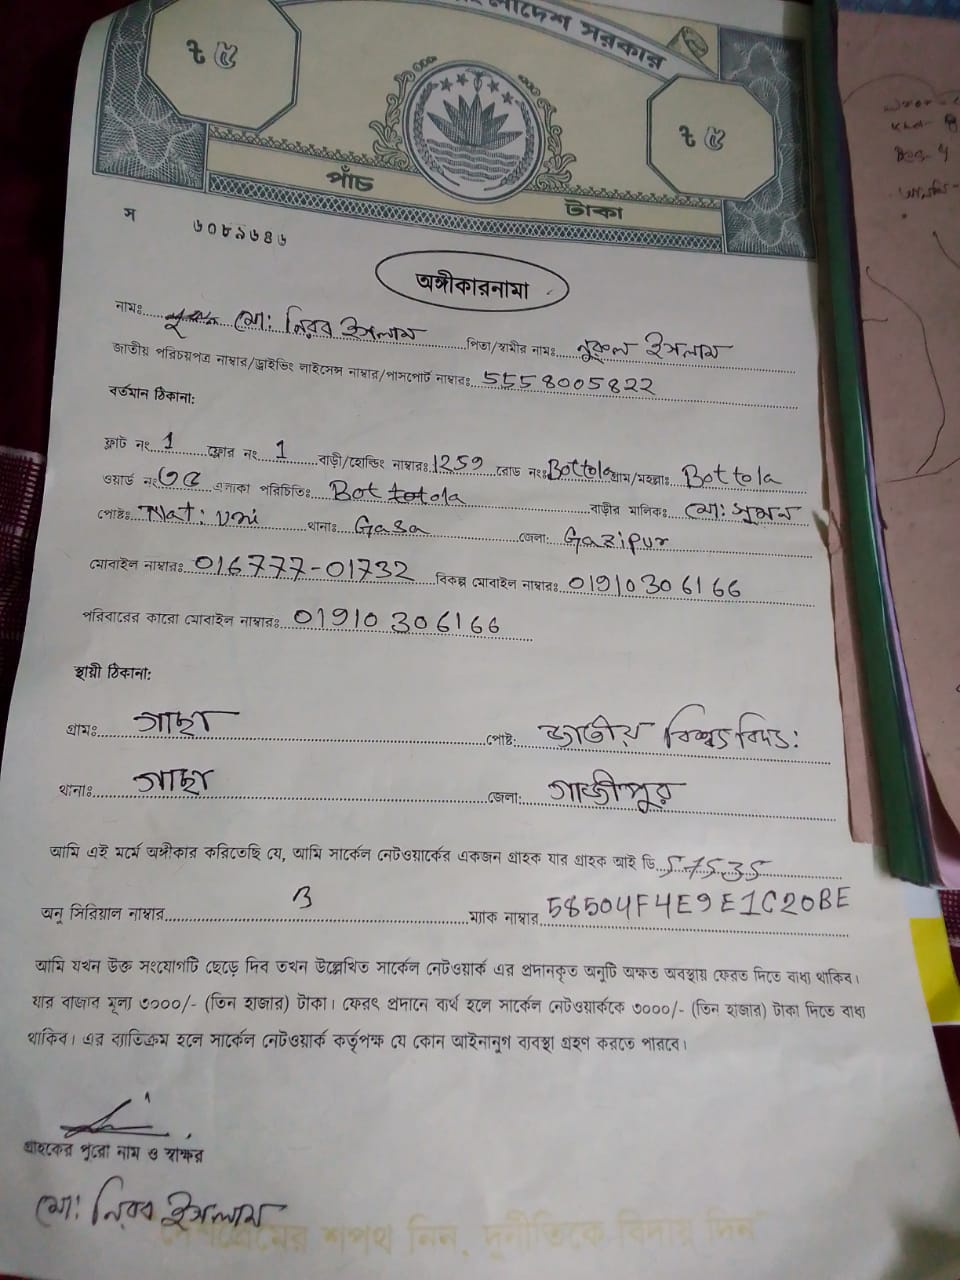 বাংলাদেশ সরকার
৳ ৫ ৳ ৫
পাঁচ টাকা
স ৬০৮৯৬৪৬
অঙ্গীকারনামা
নামঃ মো: নিরব ইসলাম পিতা/স্বামীর নামঃ নুরুল ইসলাম
জাতীয় পরিচয়পত্র নাম্বার/ড্রাইভিং লাইসেন্স নাম্বার/পাসপোর্ট নাম্বারঃ 5558005822
বর্তমান ঠিকানা:
ফ্লাট নং 1 ফ্লোর নং 1 বাড়ী/হোল্ডিং নাম্বারঃ 1259 রোড নংঃ Bottola গ্রাম/মহল্লাঃ Bottola
ওয়ার্ড নংঃ ৩৫ এলাকা পরিচিতিঃ Bottola বাড়ীর মালিকঃ মো: সুমন
পোষ্টঃ Nat: uni থানাঃ Gasa জেলা: Gazipur
মোবাইল নাম্বারঃ 016777-01732 বিকল্প মোবাইল নাম্বারঃ 01910306166
পরিবারের কারো মোবাইল নাম্বারঃ 01910306166
স্থায়ী ঠিকানা:
গ্রামঃ গাছা পোষ্ট: জাতীয় বিশ্ববিদ্য:
থানাঃ গাছা জেলা: গাজীপুর
আমি এই মর্মে অঙ্গীকার করিতেছি যে, আমি সার্কেল নেটওয়ার্কের একজন গ্রাহক যার গ্রাহক আই ডি 57535
অনু সিরিয়াল নাম্বার ম্যাক নাম্বার 58504F4E9E1C20BE
আমি যখন উক্ত সংযোগটি ছেড়ে দিব তখন উল্লেখিত সার্কেল নেটওয়ার্ক এর প্রদানকৃত অনুটি অক্ষত অবস্থায় ফেরত দিতে বাধ্য থাকিব।
যার বাজার মূল্য ৩০০০/- (তিন হাজার) টাকা। ফেরৎ প্রদানে ব্যর্থ হলে সার্কেল নেটওয়ার্ককে ৩০০০/- (তিন হাজার) টাকা দিতে বাধ্য
থাকিব। এর ব্যাতিক্রম হলে সার্কেল নেটওয়ার্ক কর্তৃপক্ষ যে কোন আইনানুগ ব্যবস্থা গ্রহণ করতে পারবে।
গ্রাহকের পুরো নাম ও স্বাক্ষর
মো: নিরব ইসলাম
দেশপ্রেমের শপথ নিন, দুর্নীতিকে বিদায় দিন